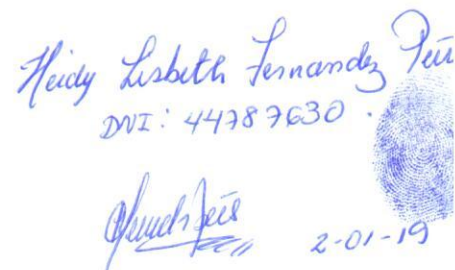 Heidy Lisbeth Fernandez
DNI: 44787630.
2-01-19